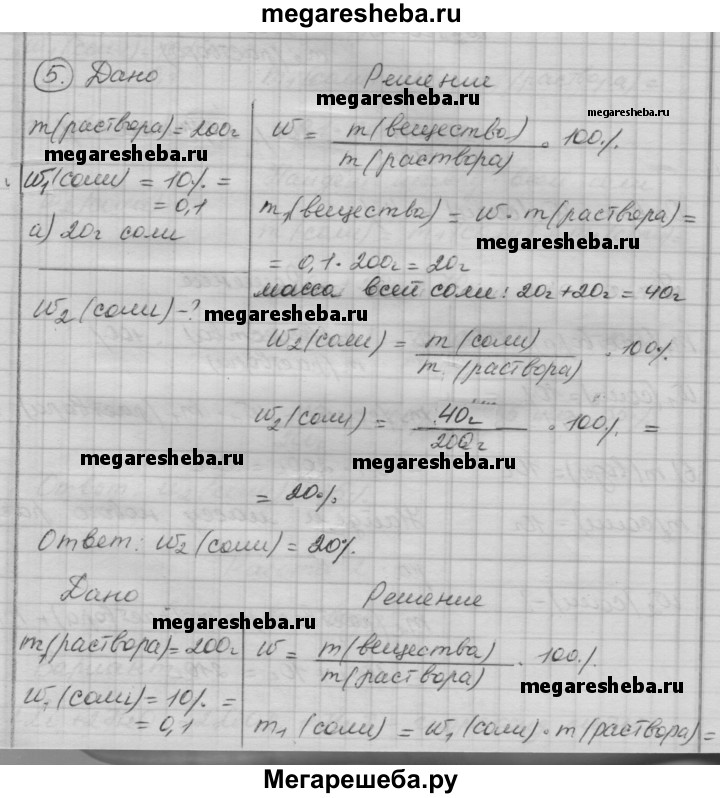 megaresheba.ru
5. Дано Решение
megaresheba.ru
megaresheba.ru
m(раствора)=200г w = m(вещество) / m(раствора) · 100%
megaresheba.ru
w₁(соли) = 10% =
= 0,1
m₁(вещества) = w · m(раствора) =
а) 20г соли
megaresheba.ru
= 0,1 · 200г = 20г
масса всей соли: 20г+20г = 40г
w₂(соли)-?
megaresheba.ru
w₂(соли) = m(соли) / m₁(раствора) · 100%
w₂(соли) = 40г / 200г · 100% =
megaresheba.ru
megaresheba.ru
= 20%
Ответ: w₂(соли) = 20%.
Дано Решение
megaresheba.ru
m₁(раствора)=200г w = m(вещества) / m(раствора) · 100%
megaresheba.ru
w₁(соли) = 10% =
= 0,1
m₁(соли) = w₁(соли) · m(раствора) =
megaresheba.ru
Мегарешеба.ру